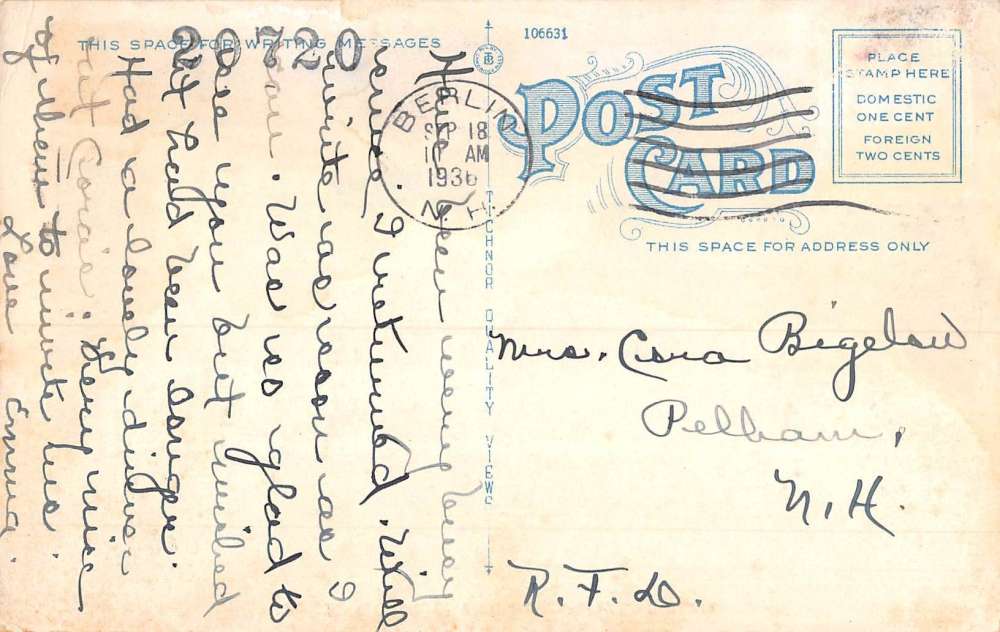 THIS SPACE FOR WRITING MESSAGES
20720
Have been very busy
since I returned. Will
write as soon as I
can. Was so glad to
see you but wished
it had been longer.
Had a lovely dinner
at Very nice
of them to invite us.
Love Emma.
106631
TICHNOR QUALITY VIEWS
BERLIN
SEP 18
10 AM
1936
N.H.
POST CARD
PLACE
STAMP HERE
DOMESTIC
ONE CENT
FOREIGN
TWO CENTS
THIS SPACE FOR ADDRESS ONLY
Mrs. Cora Bigelow
Pelham,
N.H.
R.F.D.